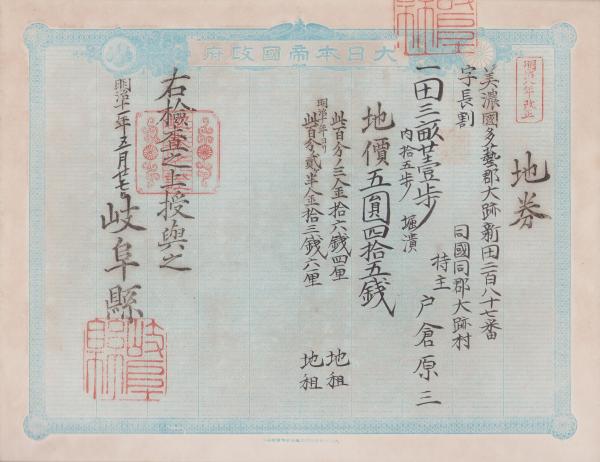 大日本帝國政府
明治八年改正
地券
美濃國多藝郡大跡新田二百八十七番
字長割
同國同郡大跡村
一田三畝廿壹歩 持主 戸倉原三
内拾五歩 堀潰
地價五圓四拾五銭
此百分ノ三金拾六銭四厘 地租
明治十年ヨリ
此百分ノ貳半金拾三銭六厘 地租
右検査之上授與之
明治十一年五月廿七日
岐阜縣